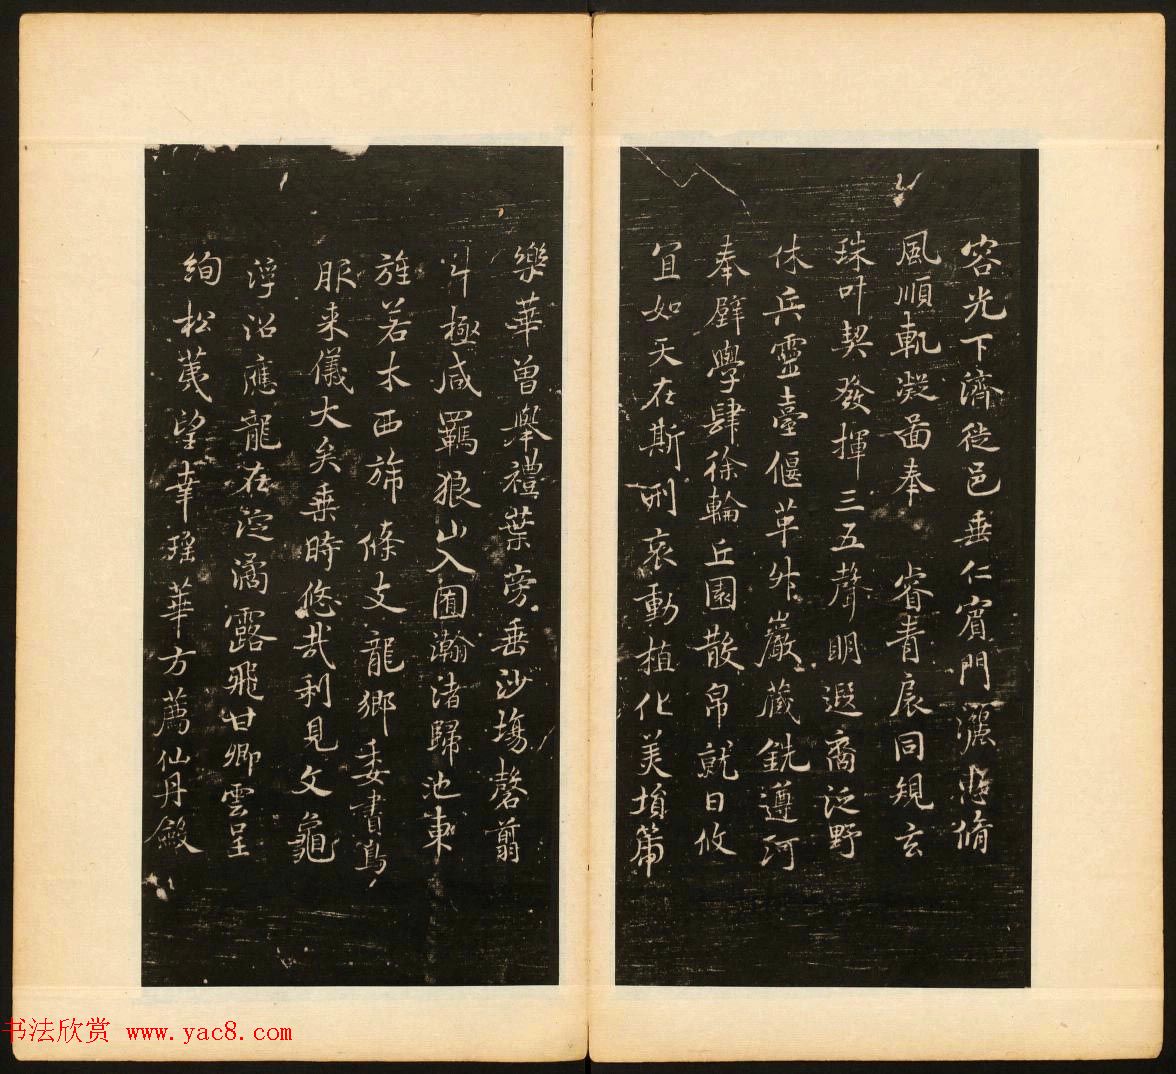 容光下濟從邑垂仁賓門脩
風順軌凝圖奉 睿青扆同規玄
珠叶契發揮三五聲明遐裔泛野
休兵靈臺偃革巖藏銑遵河
奉璧學肆徐輪丘園散帛就日攸
宜如天在斯刑哀動植化美墳篇
樂華曾舉禮葉旁垂沙場罄翦
斗極咸羈狼山入囿瀚渚歸池東
旌若木西旆條支龍鄉委書鳥
服来儀大矣乘時悠哉利見文龜
浮沼應龍在淀潏露飛甘卿雲呈
絢松望幸瑶華方薦仙丹斂
书法欣赏 www.yac8.com